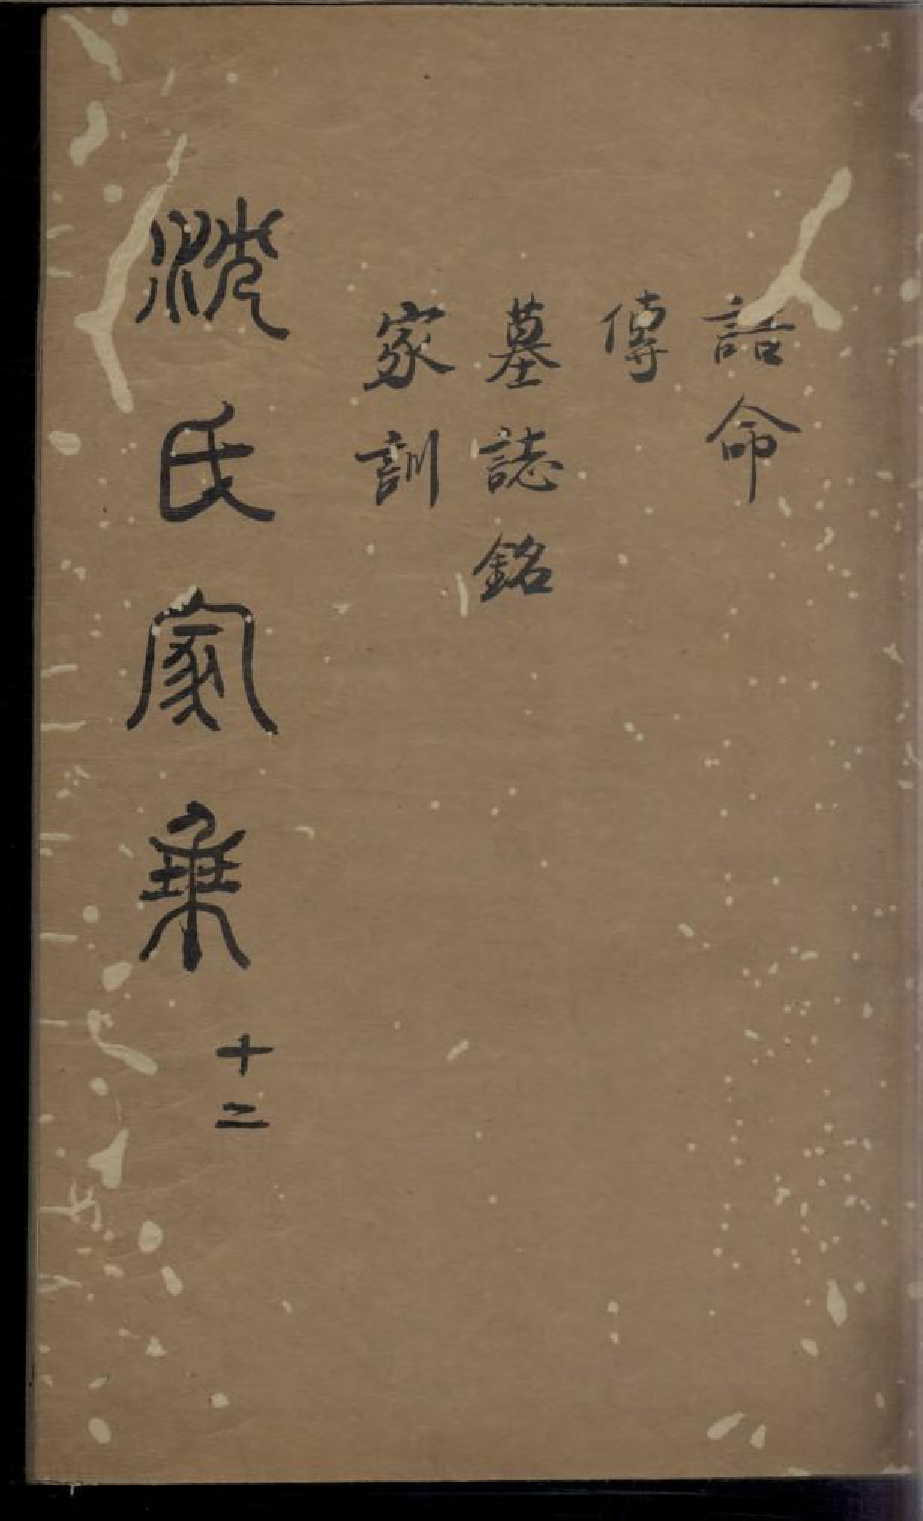 誥命
傳
墓誌銘
家訓
沈氏家乘 十二